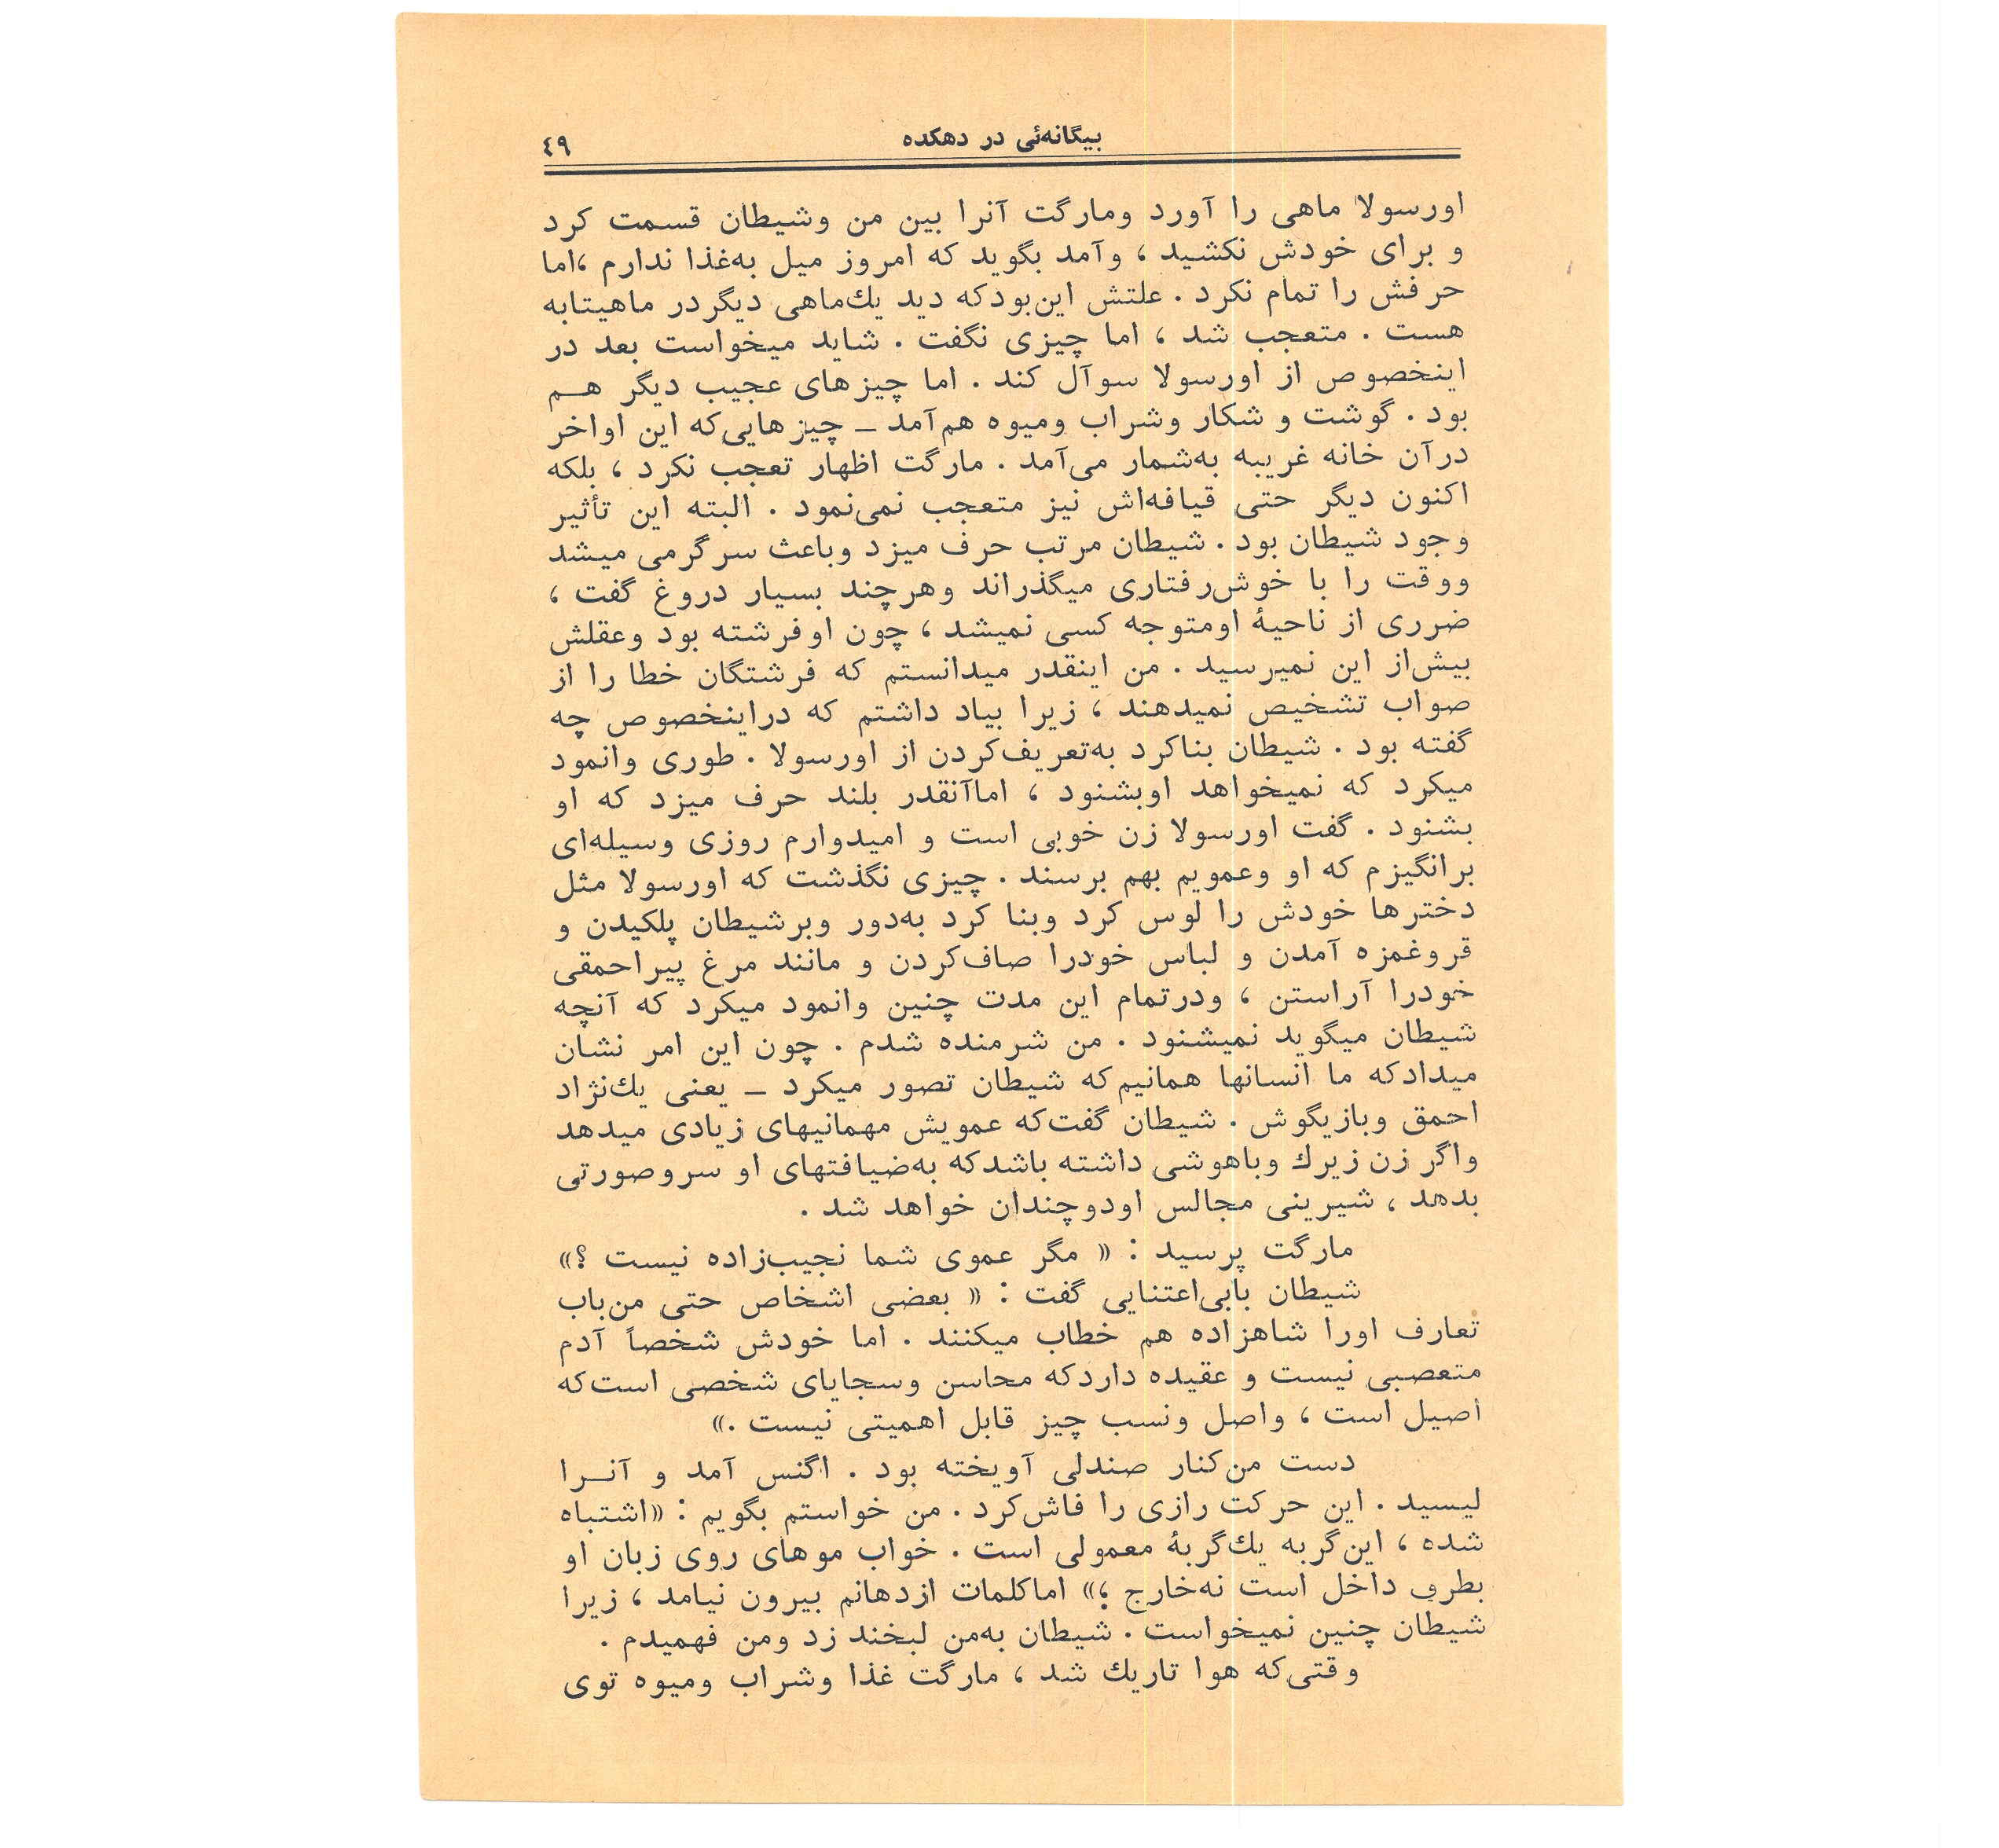 بیگانه‌ئی در دهکده
٤٩
اورسولا ماهی را آورد ومارگت آنرا بین من وشیطان قسمت کرد
و برای خودش نکشید ، وآمد بگوید که امروز میل به‌غذا ندارم ،اما
حرفش را تمام نکرد . علتش این‌بودکه دید یك‌ماهی دیگردر ماهیتابه
هست . متعجب شد ، اما چیزی نگفت . شاید میخواست بعد در
اینخصوص از اورسولا سوآل کند . اما چیزهای عجیب دیگر هـم
بود . گوشت و شکار وشراب ومیوه هم‌آمد ـ چیزهایی‌که این اواخر
درآن خانه غریبه به‌شمار می‌آمد . مارگت اظهار تعجب نکرد ، بلکه
اکنون دیگر حتی قیافه‌اش نیز متعجب نمی‌نمود . البته این تأثیر
وجود شیطان بود . شیطان مرتب حرف میزد وباعث سرگرمی میشد
ووقت را با خوش‌رفتاری میگذراند وهرچند بسیار دروغ گفت ،
ضرری از ناحیهٔ اومتوجه کسی نمیشد ، چون اوفرشته بود وعقلش
بیش‌از این نمیرسید . من اینقدر میدانستم که فرشتگان خطا را از
صواب تشخیص نمیدهند ، زیرا بیاد داشتم که دراینخصوص چه
گفته بود . شیطان بناکرد به‌تعریف‌کردن از اورسولا . طوری وانمود
میکرد که نمیخواهد اوبشنود ، اماآنقدر بلند حرف میزد که او
بشنود . گفت اورسولا زن خوبی است و امیدوارم روزی وسیله‌ای
برانگیزم که او وعمویم بهم برسند . چیزی نگذشت که اورسولا مثل
دخترها خودش را لوس کرد وبنا کرد به‌دور وبرشیطان پلکیدن و
قروغمزه آمدن و لباس خودرا صاف‌کردن و مانند مرغ پیراحمقی
خودرا آراستن ، ودرتمام این مدت چنین وانمود میکرد که آنچه
شیطان میگوید نمیشنود . من شرمنده شدم . چون این امر نشان
میدادکه ما انسانها همانیم‌که شیطان تصور میکرد ـ یعنی یك‌نژاد
احمق وبازیگوش . شیطان گفت‌که عمویش مهمانیهای زیادی میدهد
واگر زن زیرك وباهوشی داشته باشدکه به‌ضیافتهای او سروصورتی
بدهد ، شیرینی مجالس اودوچندان خواهد شد .
مارگت پرسید : « مگر عموی شما نجیب‌زاده نیست ؟»
شیطان بابی‌اعتنایی گفت : « بعضی اشخاص حتی من‌باب
تعارف اورا شاهزاده هم خطاب میکنند . اما خودش شخصاً آدم
متعصبی نیست و عقیده داردکه محاسن وسجایای شخصی است‌که
اصیل است ، واصل ونسب چیز قابل اهمیتی نیست .»
دست من‌کنار صندلی آویخته بود . اگنس آمد و آنـرا
لیسید . این حرکت رازی را فاش‌کرد . من خواستم بگویم : «اشتباه
شده ، این‌گربه یك‌گربهٔ معمولی است . خواب موهای روی زبان او
بطرف داخل است نه‌خارج ؛» اماکلمات ازدهانم بیرون نیامد ، زیرا
شیطان چنین نمیخواست . شیطان به‌من لبخند زد ومن فهمیدم .
وقتی‌که هوا تاریك شد ، مارگت غذا وشراب ومیوه توی